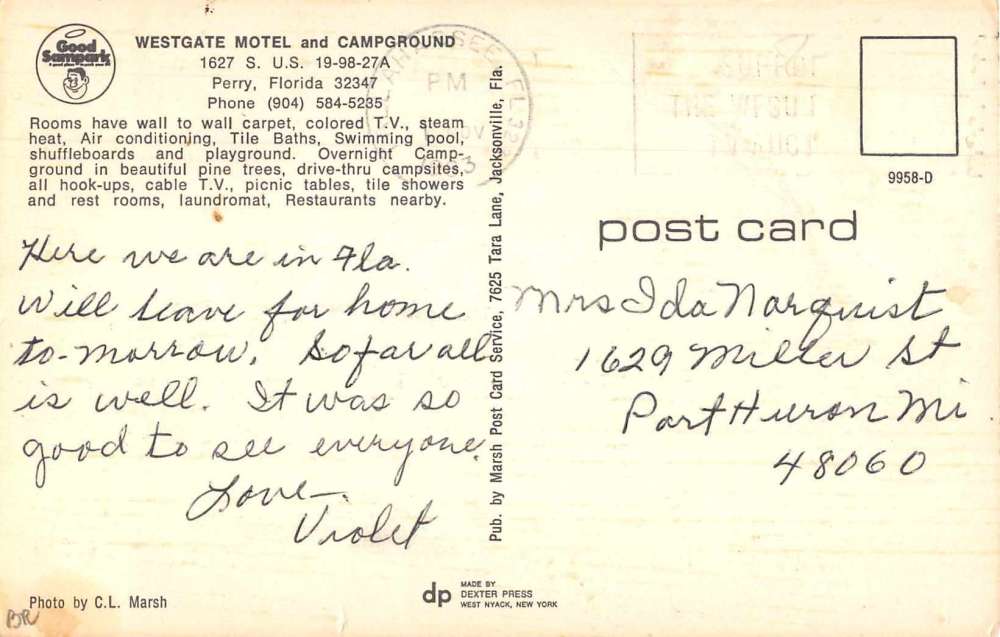 Good
Sampark
WESTGATE MOTEL and CAMPGROUND
1627 S. U.S. 19-98-27A
Perry, Florida 32347
Phone (904) 584-5235
Rooms have wall to wall carpet, colored T.V., steam
heat, Air conditioning, Tile Baths, Swimming pool,
shuffleboards and playground. Overnight Camp-
ground in beautiful pine trees, drive-thru campsites,
all hook-ups, cable T.V., picnic tables, tile showers
and rest rooms, laundromat, Restaurants nearby.
Here we are in Fla.
Will leave for home
to-morrow. So far all
is well. It was so
good to see everyone.
Love-
Violet
Photo by C.L. Marsh
BR
Pub. by Marsh Post Card Service, 7625 Tara Lane, Jacksonville, Fla.
dp
MADE BY
DEXTER PRESS
WEST NYACK, NEW YORK
PM
9958-D
post card
Mrs Ida Norquist
1629 Miller St
Port Huron Mi
48060